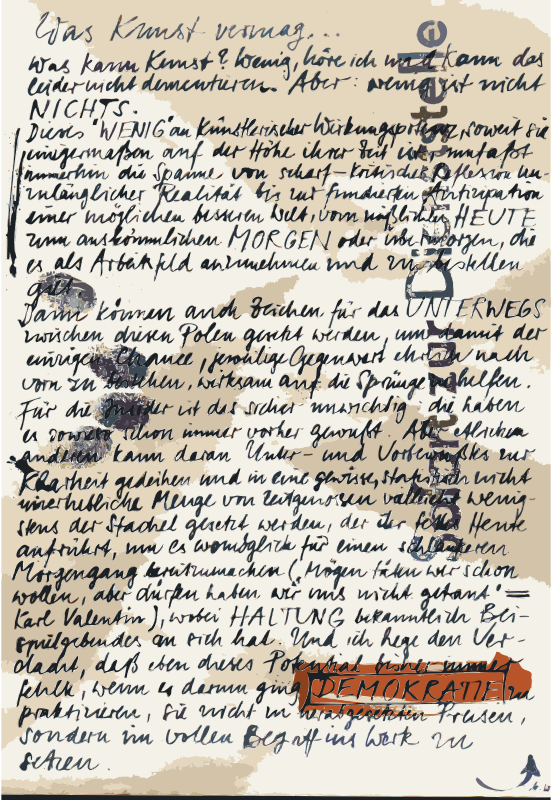 Was Kunst vermag...
Was kann Kunst? Wenig, höre ich und kann das
leider nicht dementieren. Aber: wenig ist nicht
NICHTS.
Dieses "WENIG" an künstlerischer Wirkungspotenz, soweit sie
einigermaßen auf der Höhe ihrer Zeit ist, umfaßt
immerhin die Spanne von scharf-kritischer Reflexion un-
zulänglicher Realität bis zur fundierten Antizipation
einer möglichen besseren Welt, vom mißlichen HEUTE
zum auskömmlichen MORGEN oder übermorgen, die
es als Arbeitsfeld anzunehmen und zu bestellen
gilt.
Dann können auch Zeichen für das UNTERWEGS
zwischen diesen Polen gesetzt werden, um damit der
einzigen Chance, jeweilige Gegenwart ehrlich nach
vorn zu bringen, wirksam auf die Sprünge zu helfen.
Für die Insider ist das sicher unwichtig, die haben
es sowieso schon immer vorher gewußt. Aber etlichen
anderen kann daran Unter- und Vorbewußtes zur
Klarheit gedeihen und in eine gewisse, statistisch nicht
unerhebliche Menge von Zeitgenossen vielleicht wenig-
stens der Stachel gesetzt werden, der das fette Heute
aufrührt, um es womöglich für einen schlaueren
Morgengang bereitzumachen (Mögen täten wir schon
wollen, aber dürfen haben wir uns nicht getraut =
Karl Valentin), wobei HALTUNG bekanntlich Bei-
spielgebendes an sich hat. Und ich hege den Ver-
dacht, daß eben dieses Potential bisher immer
fehlt, wenn es darum ging DEMOKRATIE zu
praktizieren, sie nicht in herabgesetzten Preisen,
sondern im vollen Begriff ins Werk zu
setzen.
zur Dienststelle